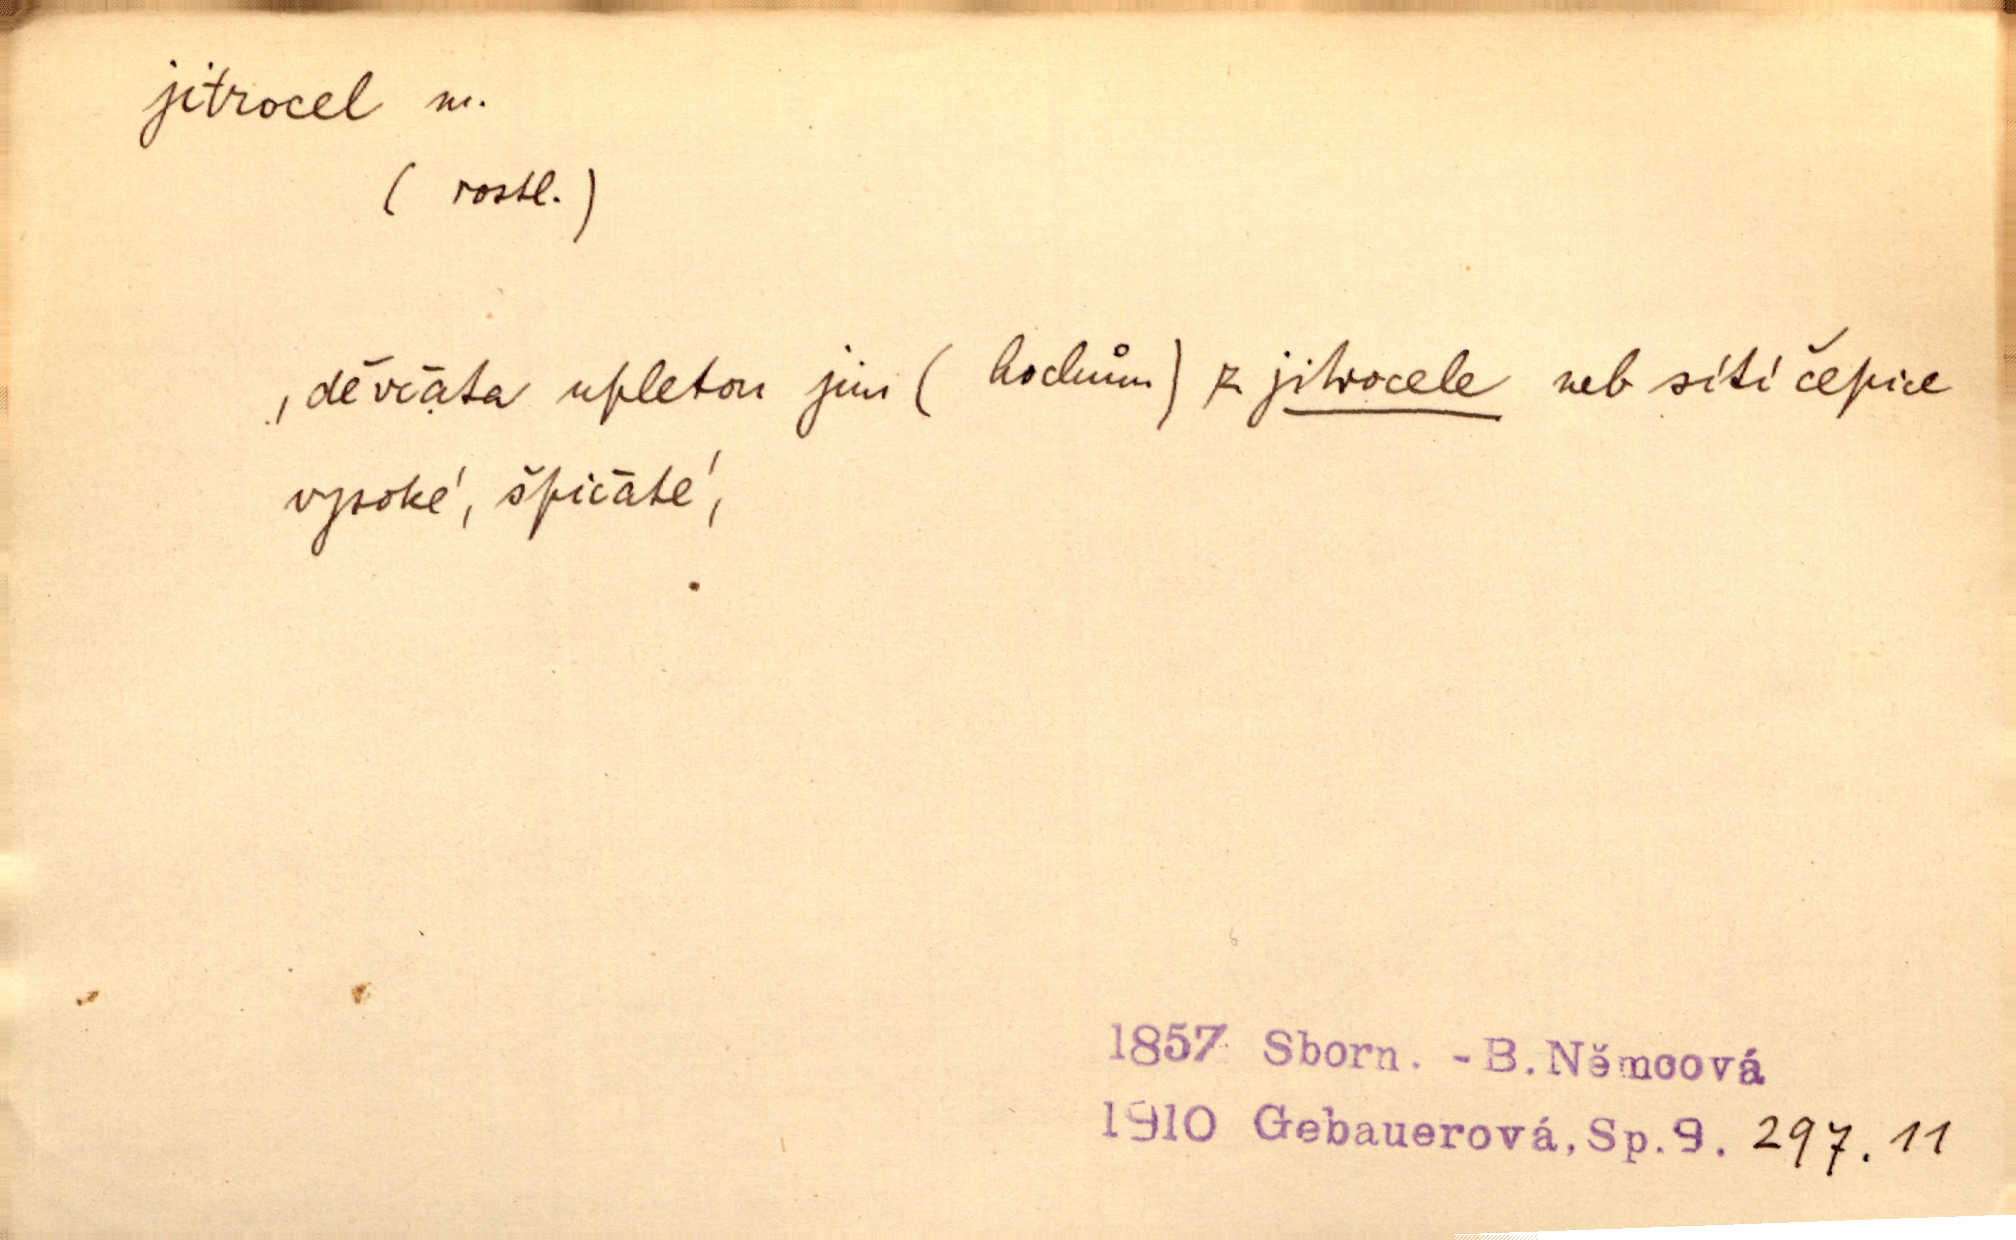 jitrocel m.
( rostl.)
, děvčata upletou jim ( hochům) z jitrocele neb sítí čepice
vysoké, špičaté,
1857 Sborn. - B. Němcová
1910 Gebauerová, Sp. 9. 297. 11